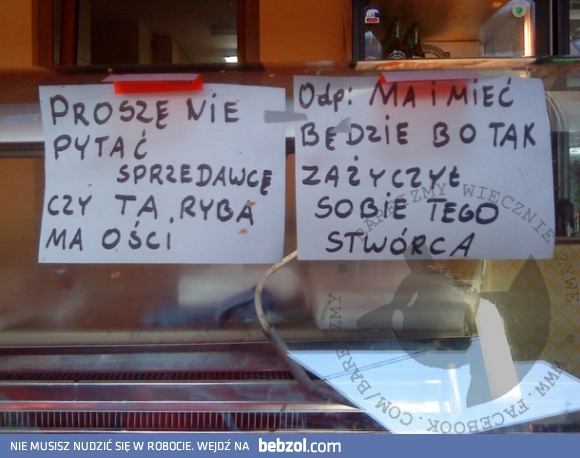 PROSZĘ NIE
PYTAĆ
SPRZEDAWCĘ
CZY TA RYBA
MA OŚCI
Odp: MA i MIEĆ
BĘDZIE BO TAK
ZAŻYCZYŁ
SOBIE TEGO
STWÓRCA
BAREIZMY WIECZNIE ŻYWE
WWW.FACEBOOK.COM/BAREIZMY
NIE MUSISZ NUDZIĆ SIĘ W ROBOCIE. WEJDŹ NA bebzol.com